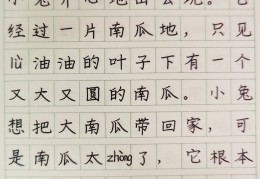 经过一片南瓜地，只见
沁油油的叶子下有一个
又大又圆的南瓜。小兔
想把大南瓜带回家，可
是南瓜太zhòng了，它根本